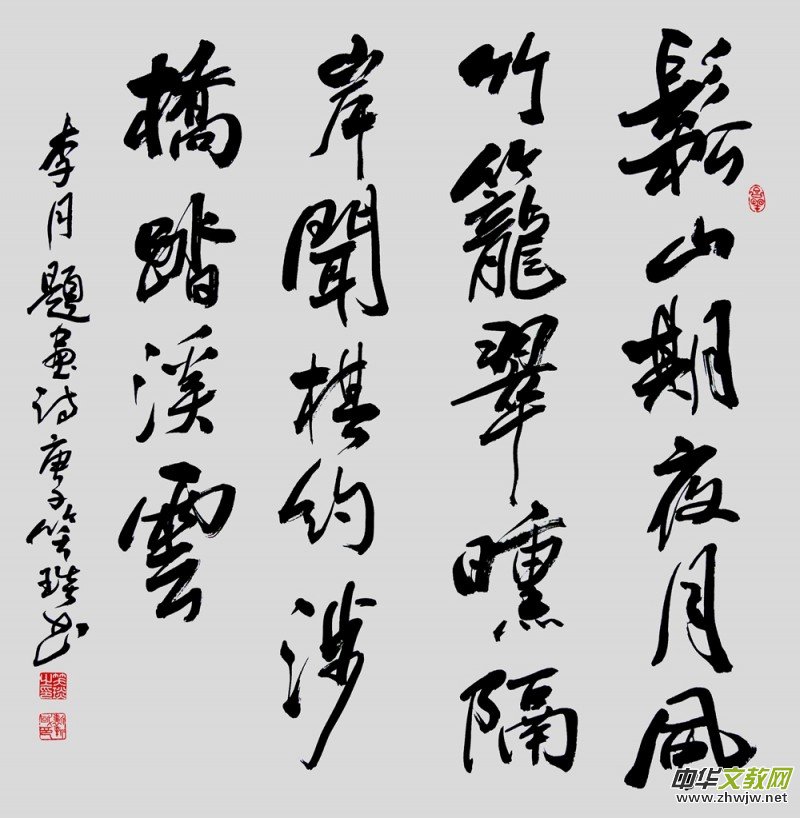 鬆山期夜月風
竹籠翠曛隔
岸聞棋約涉
橋踏溪雲
李月題畫诗庚子笑书
中华文教网
www.zhwjw.net